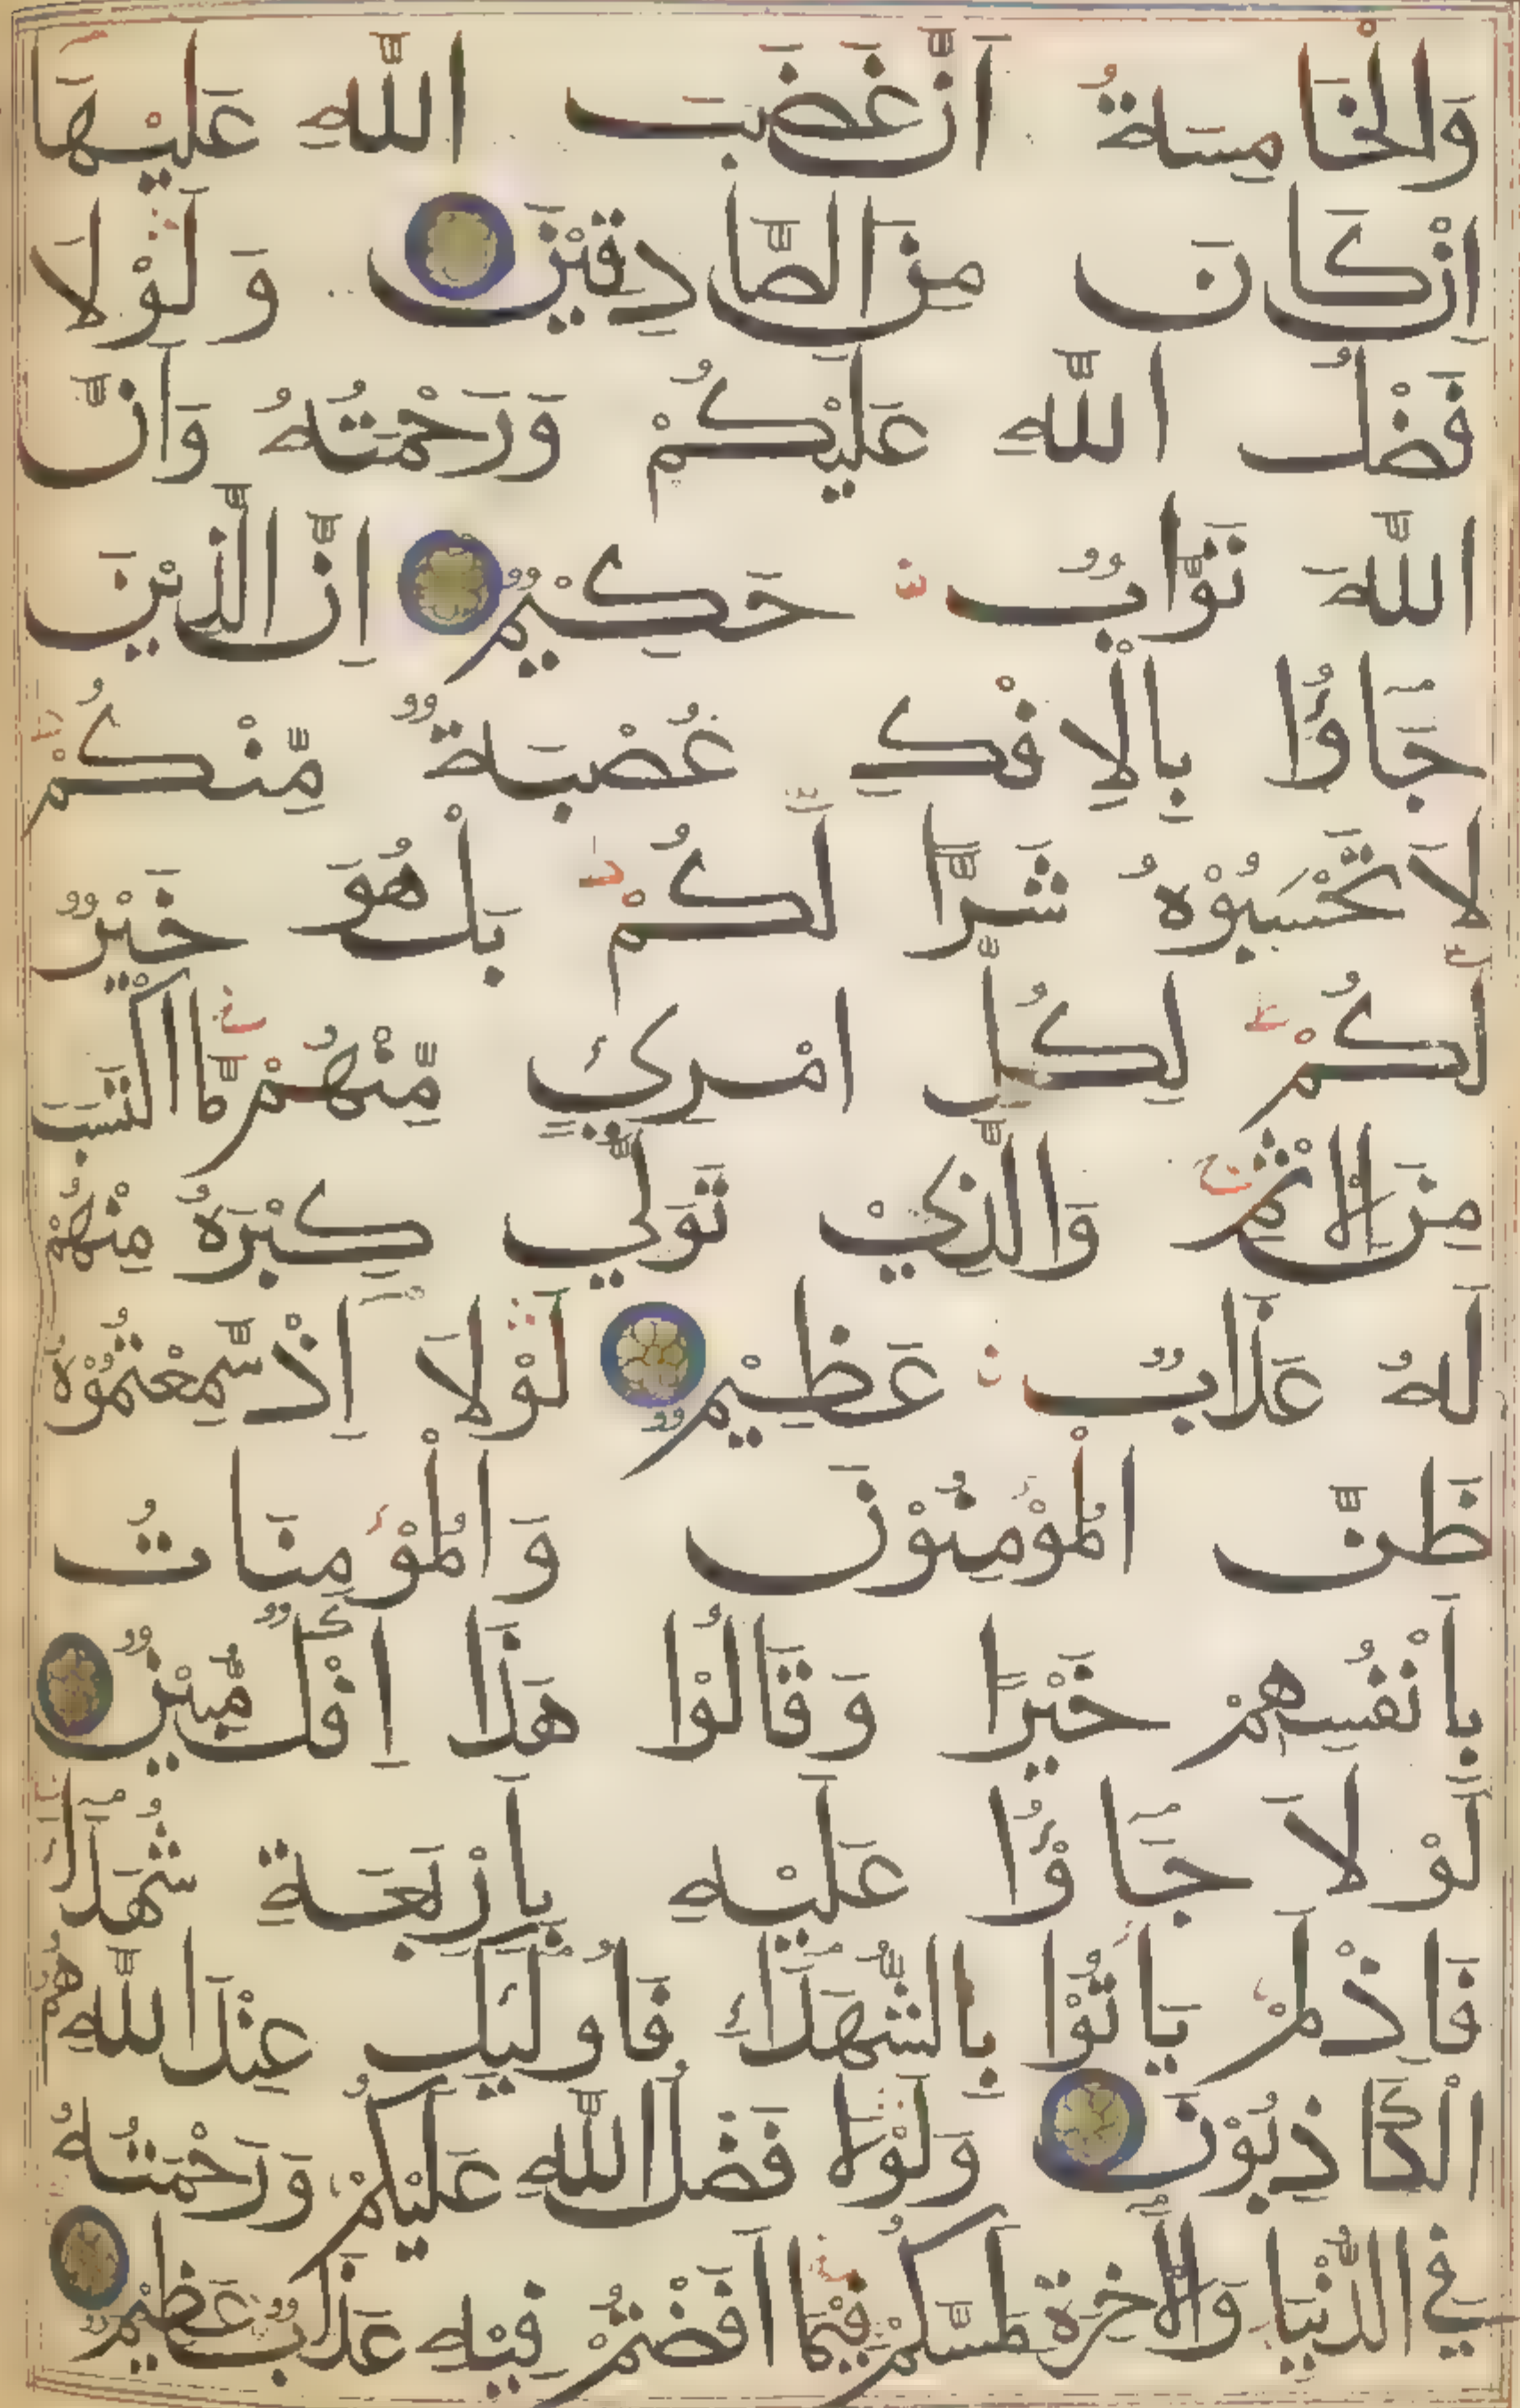 وَالْخَامِسَةُ اَنَّ غَضَبَ اللّٰهِ عَلَيْهَا
اِنْ كَانَ مِنَ الصَّادِقِيْنَ وَ لَوْ لَا
فَضْلُ اللّٰهِ عَلَيْكُمْ وَرَحْمَتُهُ وَاَنَّ
اللّٰهَ تَوَّابٌ حَكِيْمٌ اِنَّ الَّذِيْنَ
جَاؤُا بِالْاِفْكِ عُصْبَةٌ مِّنْكُمْ
لَا تَحْسَبُوْهُ شَرًّا لَّكُمْ بَلْ هُوَ خَيْرٌ
لَّكُمْ لِكُلِّ امْرِئٍ مِّنْهُمْ مَّا اكْتَسَبَ
مِنَ الْاِثْمِ وَالَّذِيْ تَوَلّٰي كِبْرَهُ مِنْهُمْ
لَهُ عَذَابٌ عَظِيْمٌ لَوْلَا اِذْ سَّمِعْتُمُوْهُ
ظَنَّ الْمُؤْمِنُوْنَ وَالْمُؤْمِنَاتُ
بِاَنْفُسِهِمْ خَيْرًا وَ قَالُوْا هَذَا اِفْكٌ مُّبِيْنٌ
لَوْ لَا جَاؤُا عَلَيْهِ بِاَرْبَعَةِ شُهَدَآءَ
فَاِذْ لَمْ يَاْتُوْا بِالشُّهَدَآءِ فَاُولٰئِكَ عِنْدَ اللّٰهِ هُمُ
الْكَاذِبُوْنَ وَلَوْلَا فَضْلُ اللّٰهِ عَلَيْكُمْ وَرَحْمَتُهُ
فِي الدُّنْيَا وَالْاٰخِرَةِ لَمَسَّكُمْ فِيْمَا اَفَضْتُمْ فِيْهِ عَذَابٌ عَظِيْمٌ